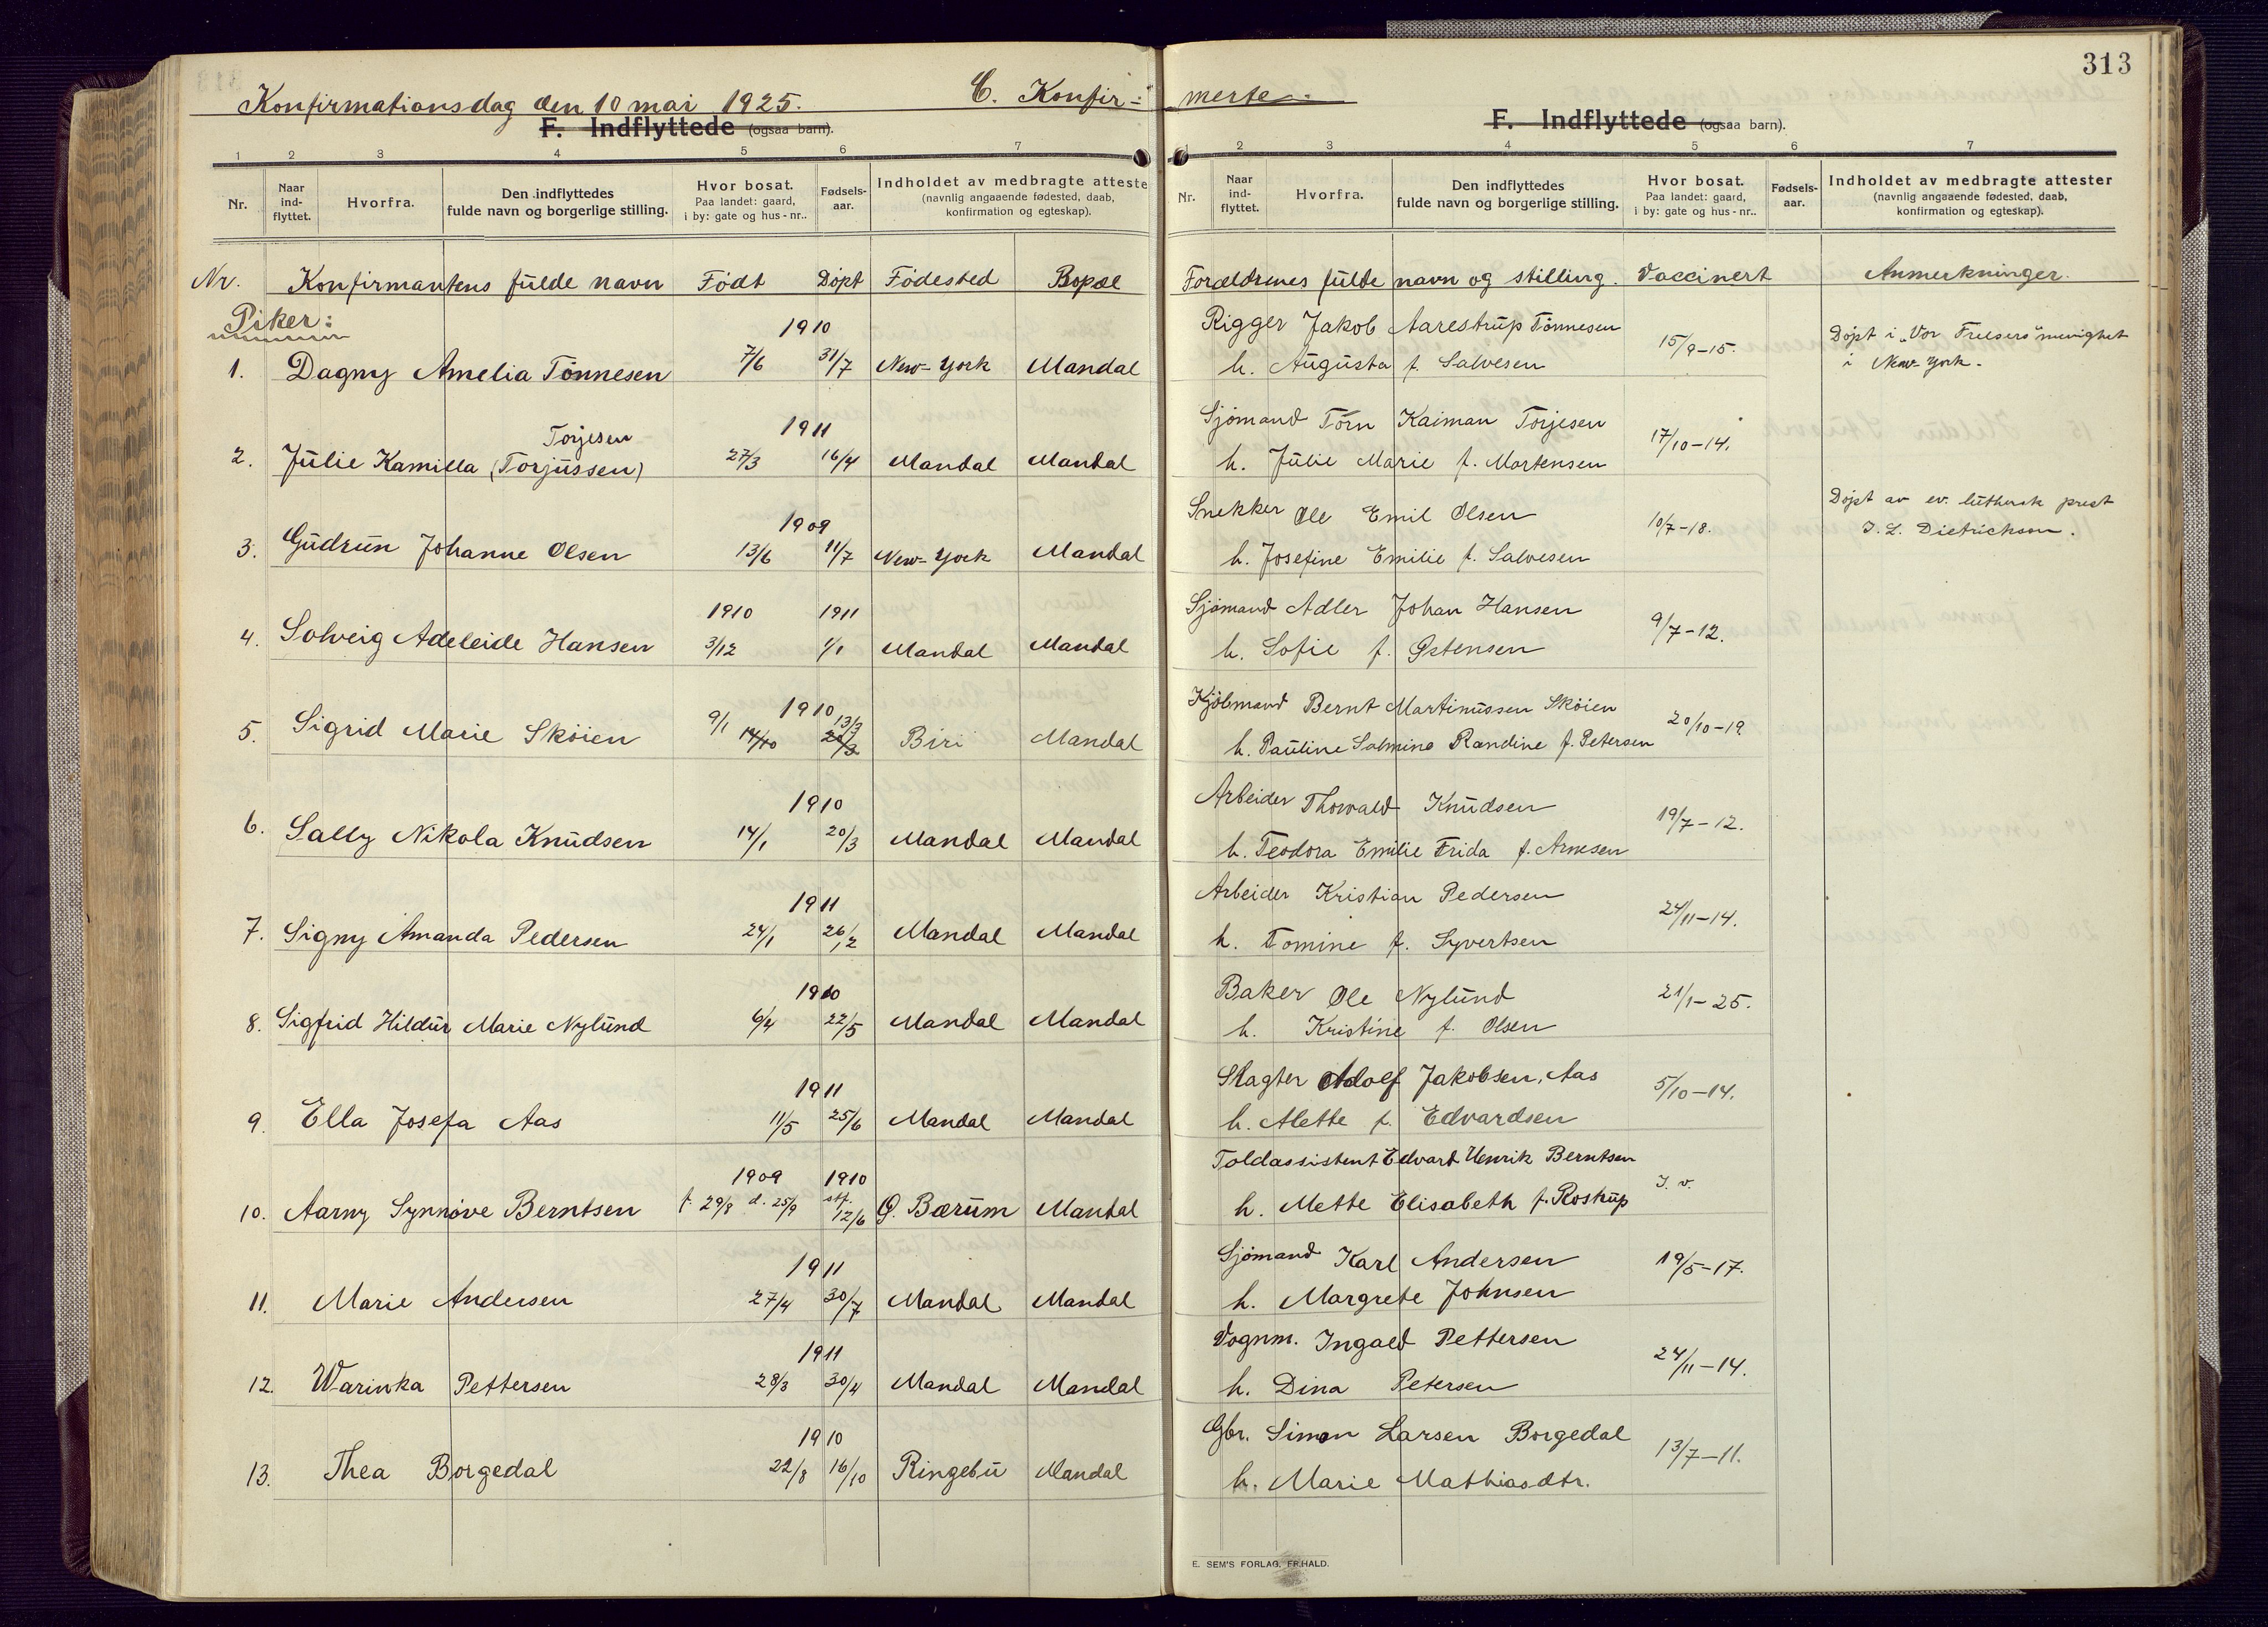 313
Konfirmationsdag den 10 mai 1925. C. Konfir- merte.
F. Indflyttede (ogsaa barn). F. Indflyttede (ogsaa barn).
1 2 3 4 5 6 7 1 2 3 4 5 6 7
Nr. Naar ind-flyttet. Hvorfra. Den indflyttedes fulde navn og borgerlige stilling. Hvor bosat. Paa landet: gaard, i by: gate og hus-nr.. Fødsels-aar. Indholdet av medbragte atteste (navnlig angaaende fødested, daab, konfirmation og egteskap).
Nr. Naar ind-flyttet. Hvorfra. Den indflyttedes fulde navn og borgerlige stilling. Hvor bosat. Paa landet: gaard, i by: gate og hus-nr.. Fødsels-aar. Indholdet av medbragte attester (navnlig angaaende fødested, daab, konfirmation og egteskap).
Nr. Konfirmantens fulde navn Født Døpt Fødested Bopæl Forældrenes fulde navn og stilling. Vaccinert Anmerkninger.
Piker:
1910 Rigger Jakob Aarestrup Tønnesen 15/9-15. Døpt i "Vor Frelsers" menighet
1. Dagny Amelia Tönnesen 7/6 31/7 New-York Mandal h. Augusta f. Salvesen i New-York.
Torjesen 1911 Sjömand Törn Kaiman Torjesen 17/10-14.
2. Julie Kamilla (Torjussen) 27/3 16/4 Mandal Mandal h. Julie Marie f. Mortensen
1909 Snekker Ole Emil Olsen 10/7-18. Døpt av ev. luthersk prest
3. Gudrun Johanne Olsen 13/6 11/7 New-York Mandal h. Josefine Emilie f. Salvesen J. L. Dietrichson.
1910 1911 Sjömand Adler Johan Hansen 9/7-12.
4. Solveig Adeleide Hansen 3/12 1/1 Mandal Mandal h. Sofie f. Østensen
9/1 1910 13/3 Kjöbmand Bernt Martinussen Sköien 20/10-19
5. Sigrid Marie Sköien 14/10 Biri Mandal h. Pauline Salmine Randine f. Petersen
1910 Arbeider Thorvald Knudsen 19/7-12.
6. Sally Nikola Knudsen 14/1 20/3 Mandal Mandal h. Teodora Emilie Frida f. Arnesen
1911 Arbeider Kristian Pedersen 24/11-14.
7. Signy Amanda Pedersen 24/1 26/2 Mandal Mandal h. Tomine f. Syvertsen
1910 Baker Ole Nylund 21/1-25.
8. Sigfrid Hildur Marie Nylund 6/4 22/5 Mandal Mandal h. Kristine f. Olsen
1911 Slagter Adolf Jakobsen, Aas 5/10-14.
9. Ella Josefa Aas 11/5 25/6 Mandal Mandal h. Mette f. Edvardsen
1909 1910 Toldassistent Edvard Henrik Berntsen I. v.
10. Aarny Synnöve Berntsen f. 29/8 d. 25/9 stf. 12/6 Ø. Bærum Mandal h. Mette Elisabeth f. Rostrup
1911 Sjömand Karl Andersen 19/5-17.
11. Marie Andersen 27/4 30/7 Mandal Mandal h. Margrete Johnsen
1911 Vognm. Ingald Pettersen 24/11-14.
12. Warinka Pettersen 28/3 30/4 Mandal Mandal h. Dina Petersen
1910 Gbr. Simon Larsen Borgedal 13/7-11.
13. Thea Borgedal 22/8 16/10 Ringebu Mandal h. Marie Mathiasdtr.
E. SEM'S FORLAG, FR.HALD.